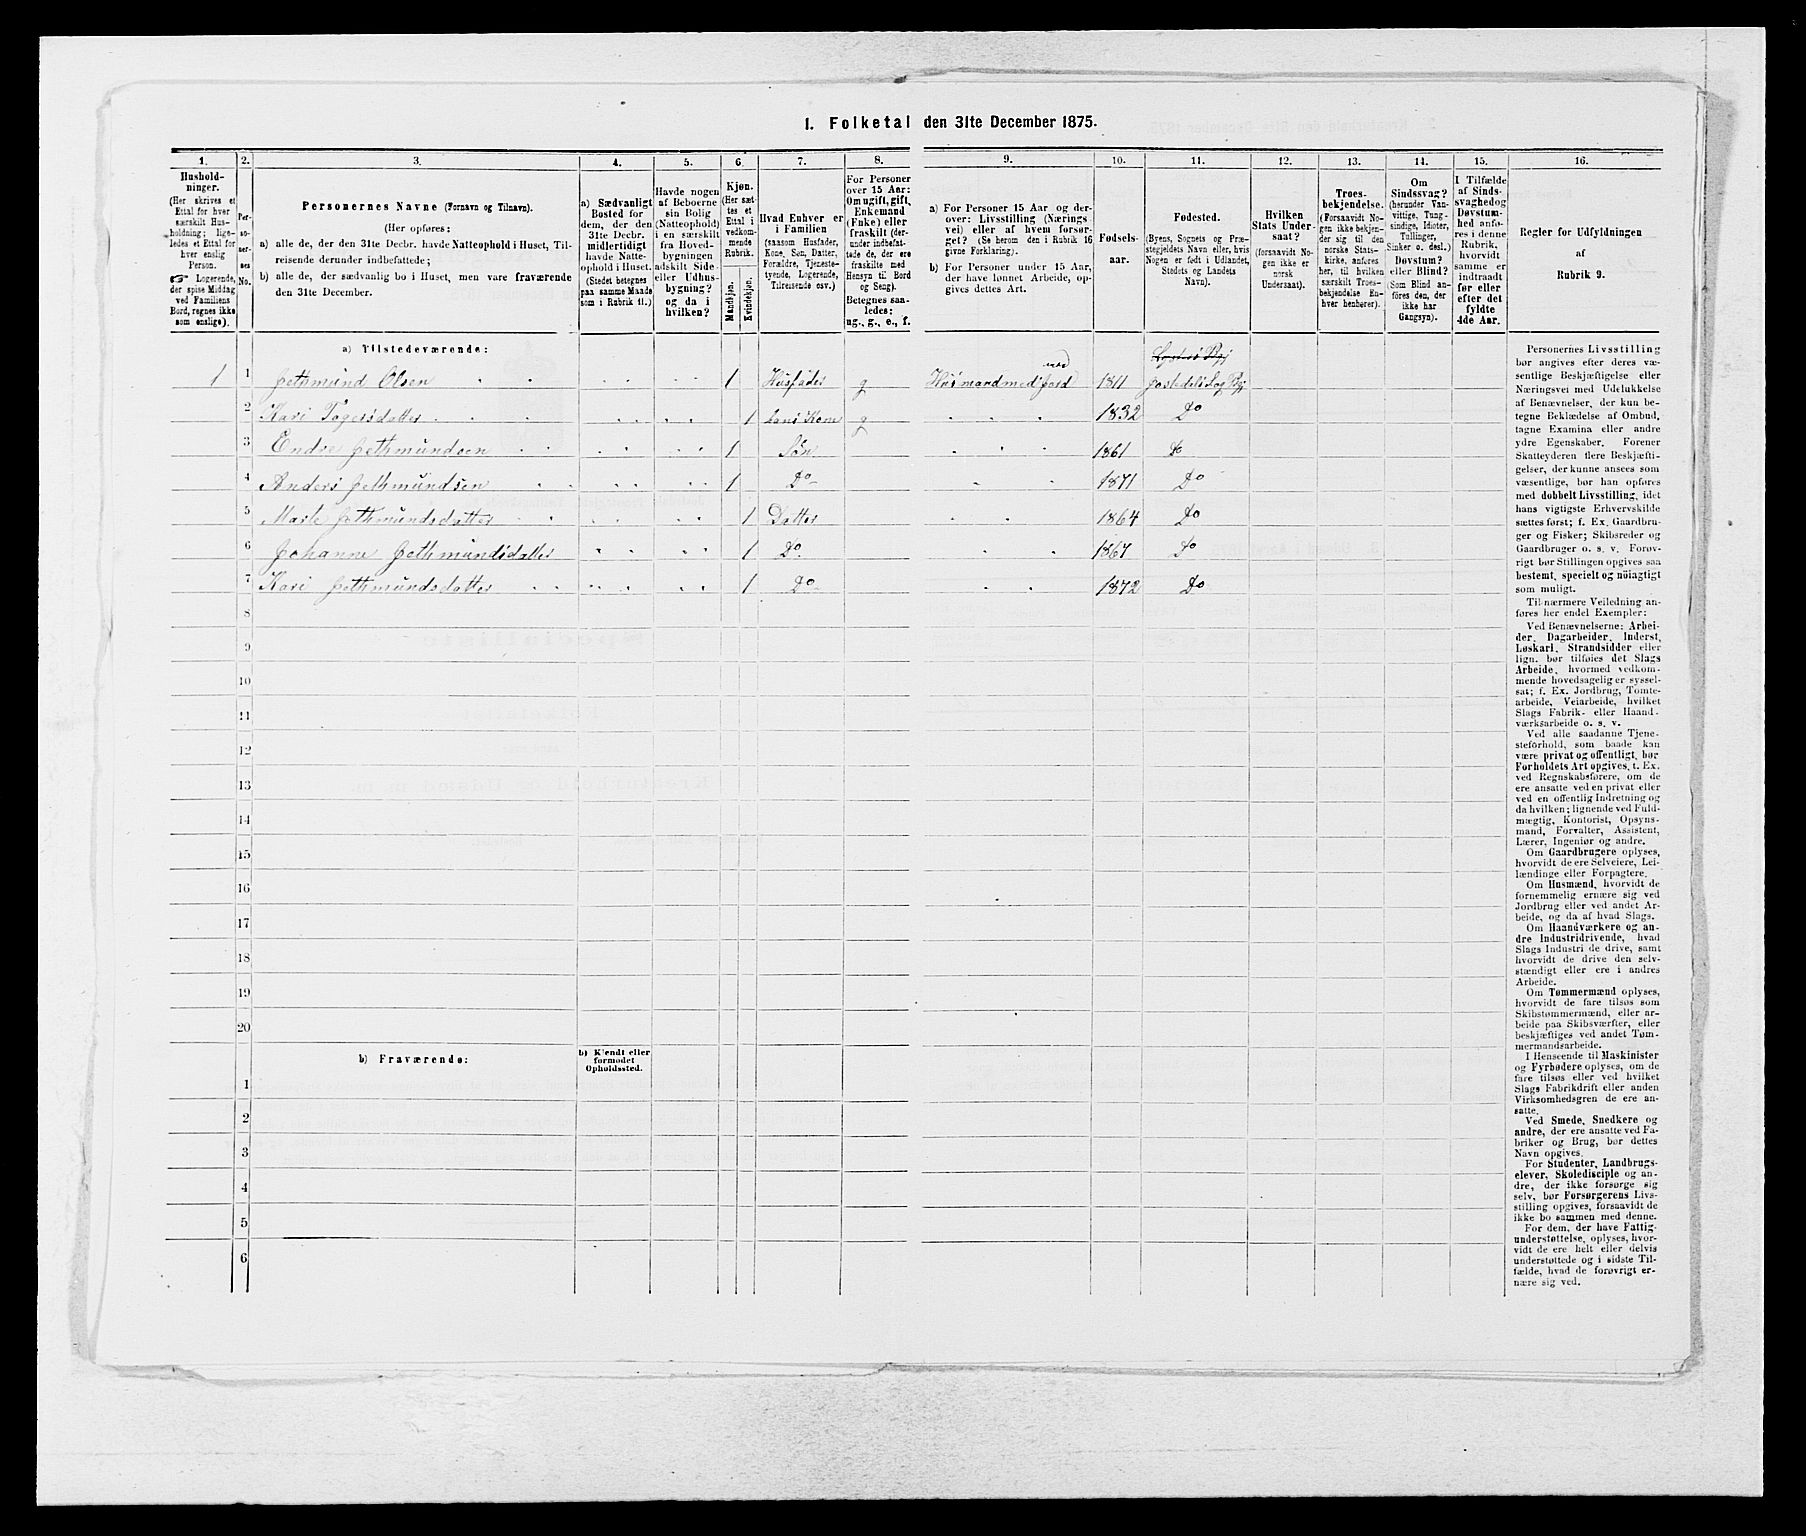 1. Folketal den 31te December 1875.
1. 2. 3. 4. 5. 6. 7. 8. 9. 10. 11. 12. 13. 14. 15. 16.
Hushold-
ninger.
(Her skrives et
Ettal for hver
særskilt Hus-
holdning; lige-
ledes et Ettal for
hver enslig
Person.
Logerende,
der spise Middag
ved Familiens
Bord, regnes ikke
som enslige).
Per-
so-
ner-
nes
No.
Personernes Navne (Fornavn og Tilnavn).
(Her opføres:
a) alle de, der den 31te Decbr. havde Natteophold i Huset, Til-
reisende derunder indbefattede;
b) alle de, der sædvanlig bo i Huset, men vare fraværende
den 31te December.
a) Sædvanligt
Bosted for
dem, der den
31te Decbr.
midlertidigt
havde Natte-
ophold i Huset.
(Stedet betegnes
paa samme Maade
som i Rubrik 11.)
Havde nogen
af Beboerne
sin Bolig
(Natteophold)
i en særskilt
fra Hoved-
bygningen
adskilt Side-
eller Udhus-
bygning?
og da i
hvilken?
Kjøn.
(Her sæt-
tes et
Ettal i
vedkom-
mende
Rubrik.
Mandkjøn.
Kvindekjøn.
Hvad Enhver er
i Familien
(saasom Husfader,
Kone, Søn, Datter,
Forældre, Tjeneste-
tyende, Logerende,
Tilreisende osv.)
For Personer
over 15 Aar:
Om ugift, gift,
Enkemand
(Enke) eller
fraskilt (der-
under indbefat-
tede de, der ere
fraskilte med
Hensyn til Bord
og Seng).
Betegnes saa-
ledes:
ug., g., e., f.
a) For Personer 15 Aar og der-
over: Livsstilling (Nærings-
vei) eller af hvem forsør-
get? (Se herom den i Rubrik 16
givne Forklaring).
b) For Personer under 15 Aar,
der have lønnet Arbeide, op-
gives dettes Art.
Fødsels-
aar.
Fødested.
(Byens, Sognets og Præ-
stegjeldets Navn eller, hvis
Nogen er født i Udlandet,
Stedets og Landets
Navn).
Hvilken
Stats Under-
saat?
(forsaavidt No-
gen ikke er
norsk
Undersaat).
Troes-
bekjendelse.
(Forsaavidt No-
gen ikke bekjen-
der sig til den
norske Stats-
kirke, anføres
her, til hvilken
særskilt Troes-
bekjendelse En-
hver henhører).
Om
Sindssvag?
(herunder Van-
vittige, Tung-
sindige, Idioter,
Tullinger,
Sinker o. desl.)
Døvstum?
eller Blind?
(Som Blind an-
føres den, der
ikke har
Gangsyn).
I Tilfælde
af Sinds-
svaghed og
Døvstum-
hed anfø-
res i denne
Rubrik,
hvorvidt
samme er
indtraadt
før eller
efter det
fyldte
4de Aar.
Regler for Udfyldningen
af
Rubrik 9.
a) Tilstedeværende:
1 1 Jethmund Olsen 1 Husfader g Husmand med jord 1811 Jostedels Sog Prj
2 Kari Togersdatter 1 hans Kone g 1832 Do
3 Endre Jethmundsen 1 Søn 1861 Do
4 Anders Jethmundsen 1 Do 1871 Do
5 Marte Jethmundsdatter 1 Datter 1864 Do
6 Johanne Jethmundsdatter 1 Do 1867 Do
7 Kari Jethmundsdatter 1 Do 1872 Do
8
9
10
11
12
13
14
15
16
17
18
19
20
b) Fraværende:
b) Kjendt eller
formodet
Opholdssted.
1
2
3
4
5
6
Personernes Livsstilling
bør angives efter deres væ-
sentlige Beskjæftigelse eller
Næringsvei med Udelukkelse
af Benævnelser, der kun be-
tegne Beklædelse af Ombud,
tagne Examina eller andre
ydre Egenskaber. Forener
Skatteyderen flere Beskjæfti-
gelser, der kunne ansees som
væsentlige, bør han opføres
med dobbelt Livsstilling, idet
hans vigtigste Erhvervskilde
sættes først; f. Ex. Gaardbru-
ger og Fisker; Skibsreder og
Gaardbruger o. s. v. Forøv-
rigt bør Stillingen opgives saa
bestemt, specielt og nøiagtigt
som muligt.
Til nærmere Veiledning an-
føres her endel Exempler:
Ved Benævnelserne: Arbei-
der, Dagarbeider, Inderst,
Løskarl, Strandsidder eller
lign. bør tilføies det Slags
Arbeide, hvormed vedkom-
mende hovedsagelig er syssel-
sat; f. Ex. Jordbrug, Tomte-
arbeide, Veiarbeide, hvilket
Slags Fabrik- eller Haand-
værksarbeide o. s. v.
Ved alle saadanne Tjene-
steforhold, som baade kan
være privat og offentligt, bør
Forholdets Art opgives, t. Ex.
ved Regnskabsførere, om de
ere ansatte ved en privat eller
ved en offentlig Indretning og
da hvilken; lignende ved Fuld-
mægtig, Kontorist, Opsyns-
mand, Forvalter, Assistent,
Lærer, Ingeniør og andre.
Om Gaardbrugere oplyses,
hvorvidt de ere Selveiere, Lei-
lændinge eller Forpagtere.
Om Husmænd, hvorvidt de
fornemmelig ernære sig ved
Jordbrug eller ved andet Ar-
beide, og da af hvad Slags.
Om Haandværkere og an-
dre Industridrivende, hvad
Slags Industri de drive, samt
hvorvidt de drive den selv-
stændigt eller ere i andres
Arbeide.
Om Tømmermænd oplyses,
hvorvidt de fare tilsøs som
Skibstømmermænd, eller ar-
beide paa Skibsværfter, eller
beskjæftiges ved andet Tøm-
mermandsarbeide.
I Henseende til Maskinister
og Fyrbødere oplyses, om de
fare tilsøs eller ved hvilket
Slags Fabrikdrift eller anden
Virksomhedsgren de ere an-
satte.
Ved Smede, Snedkere og
andre, der ere ansatte ved Fa-
briker og Brug, bør dettes
Navn opgives.
For Studenter, Landbrugs-
elever, Skoledisciple og an-
dre, der ikke forsørge sig
selv, bør Forsørgerens Livs-
stilling opgives, forsaavidt de
ikke bo sammen med denne.
For dem, der have Fattig-
understøttelse, oplyses, hvor-
vidt de ere helt eller delvis
understøttede og i sidste Til-
fælde, hvad de forøvrigt er-
nære sig ved.